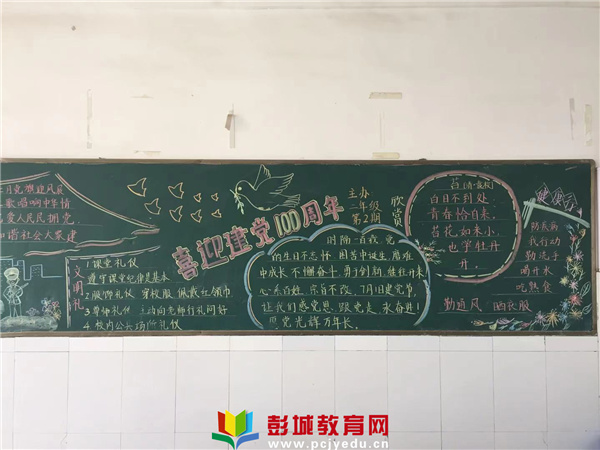 党旗迎风展
歌唱响中华情
爱人民民拥党
和谐社会大家建
文明礼
1 课堂礼仪
遵守课堂纪律是基本
2 服饰礼仪 穿校服 佩戴红领巾
3 尊师礼仪 主动向老师行礼问好
4 校内公共场所礼仪
喜迎建党100周年
主办
二年级
第2期
时隔一百载,党
的生日不忘怀
困苦中诞生 磨难
中成长 不懈奋斗 勇于创新 继往开来
心系百姓 宗旨不改 7月1日建党节
让我们感党恩 跟党走 永奋进!
愿党光辉万年长.
欣赏
苔(清·袁枚)
白日不到处,
青春恰自来.
苔花如米小,
也学牡丹
开.
健康
防疾病
我行动
勤洗手
喝开水
吃熟食
勤通风 晒衣服
彭城教育网
www.pcjyedu.cn